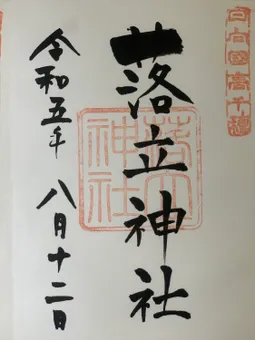 日向國高千穂
落立神社
落立神社
令和五年
八月十二日